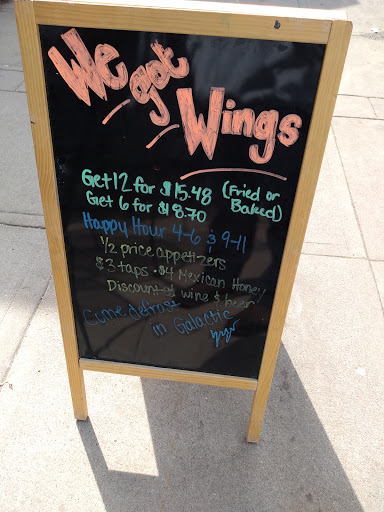 We got
Wings
Get 12 for $15.48 (Fried or
Get 6 for $8.70 Baked)
Happy Hour 4-6 & 9-11
1/2 price appetizers
$3 taps • $4 Mexican Honey
Discounted wine & beer
Come defrost
in Galactic